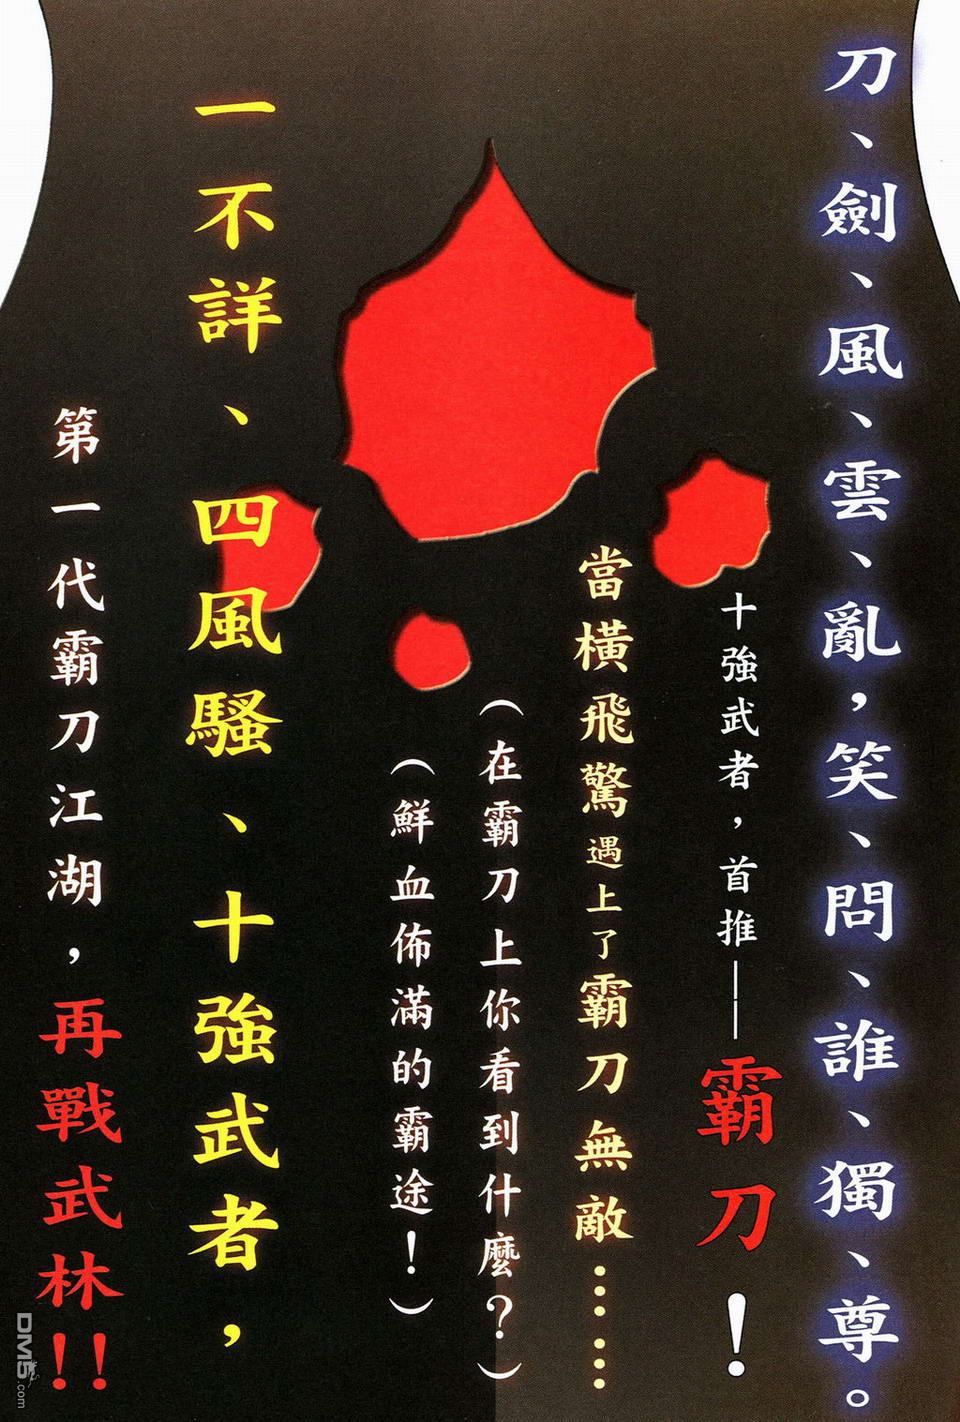 刀、劍、風、雲、亂，笑、問、誰、獨、尊。
十強武者，首推——霸刀！
當橫飛驚遇上了霸刀無敵⋯⋯
（在霸刀上你看到什麼？）
（鮮血佈滿的霸途！）
一不詳、四風騷、十強武者，
第一代霸刀江湖，再戰武林!!
DM5.com